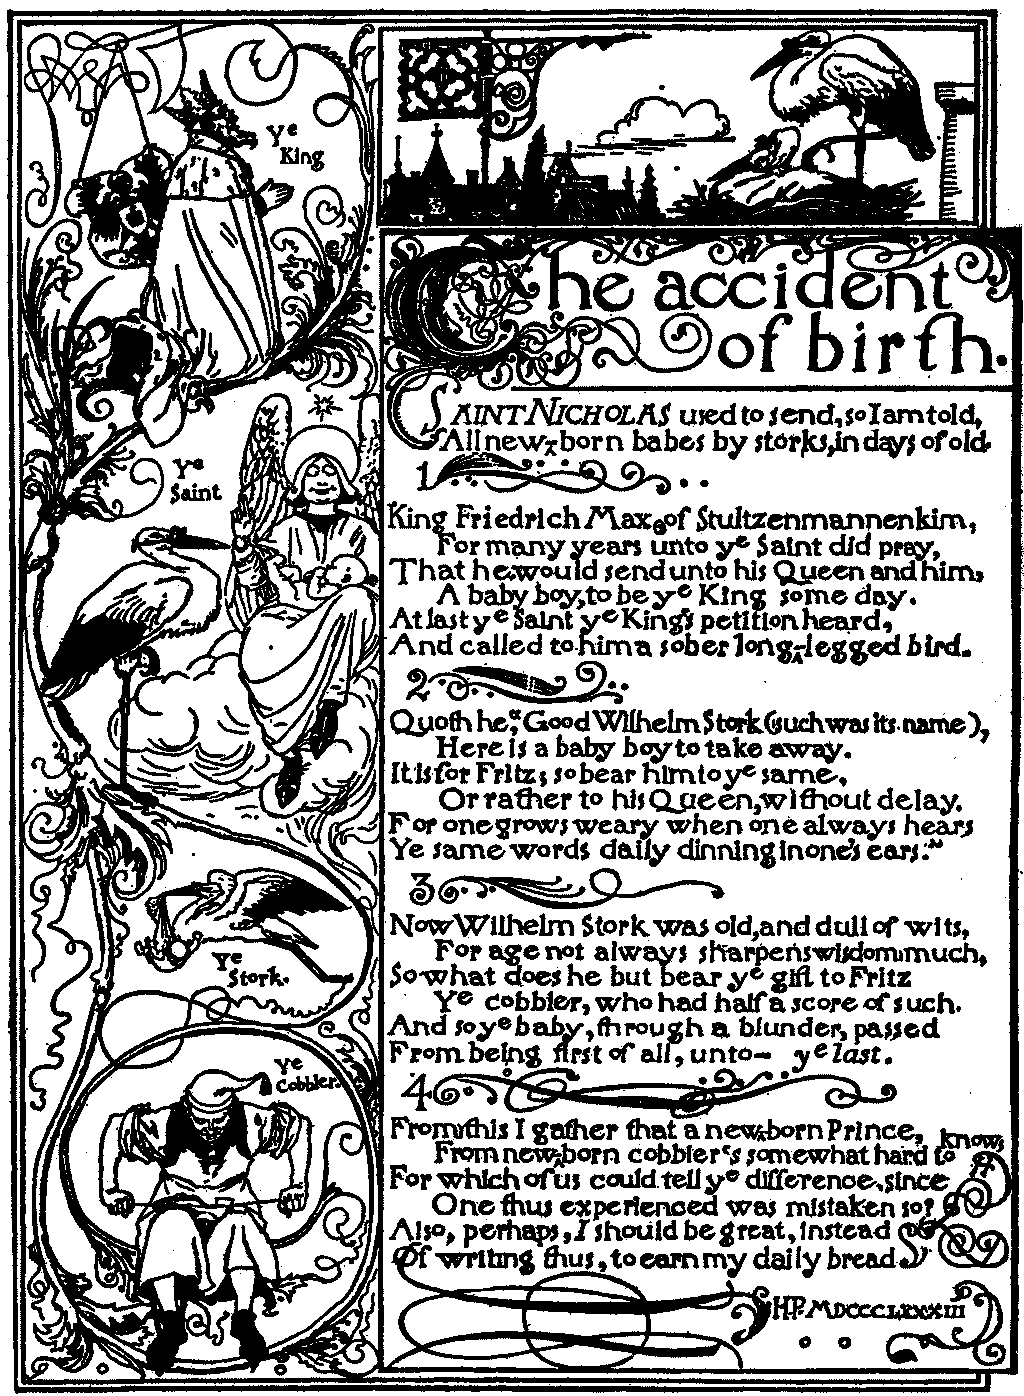 Ye
King
Ye
Saint
Ye
Stork.
Ye
Cobbler.
The accident
of birth.
SAINT NICHOLAS used to send, so I am told,
All new-born babes by storks, in days of old.
1
King Friedrich Max of Stultzenmannenkim,
For many years unto ye Saint did pray,
That he would send unto his Queen and him,
A baby boy, to be ye King some day.
At last ye Saint ye King's petition heard,
And called to him a sober long-legged bird.
2
Quoth he, "Good Wilhelm Stork (such was its name),
Here is a baby boy to take away.
It is for Fritz; so bear him to ye same,
Or rather to his Queen, without delay.
For one grows weary when one always hears
Ye same words daily dinning in one's ears."
3
Now Wilhelm Stork was old, and dull of wits,
For age not always sharpens wisdom much,
So what does he but bear ye gift to Fritz
Ye cobbler, who had half a score of such.
And so ye baby, through a blunder, passed
From being first of all, unto— ye last.
4
From this I gather that a new-born Prince,
From new-born cobbler's somewhat hard to know,
For which of us could tell ye difference, since
One thus experienced was mistaken so?
Also, perhaps, I should be great, instead
Of writing thus, to earn my daily bread.
HP. MDCCCLXXXIII